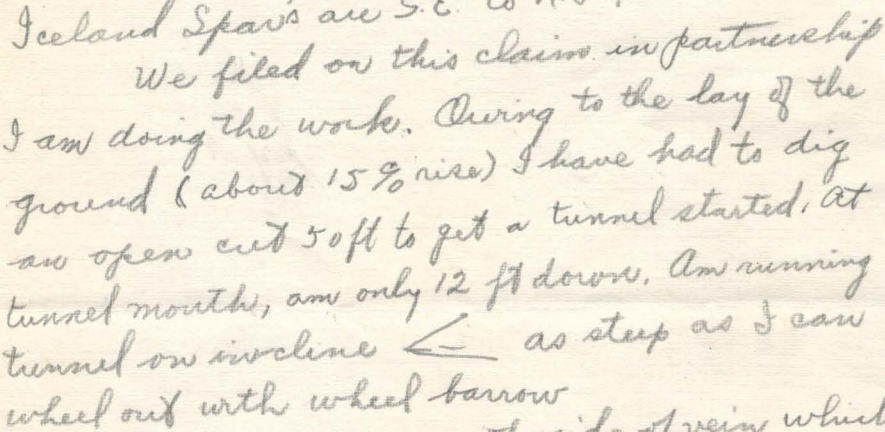 Iceland Spars are S.E. to
We filed on this claim in partnership
I am doing the work. Owing to the lay of the
ground (about 15% rise) I have had to dig
an open cut 50 ft to get a tunnel started. At
tunnel mouth, am only 12 ft down. Am running
tunnel on incline as steep as I can
wheel out with wheel barrow
side of vein which